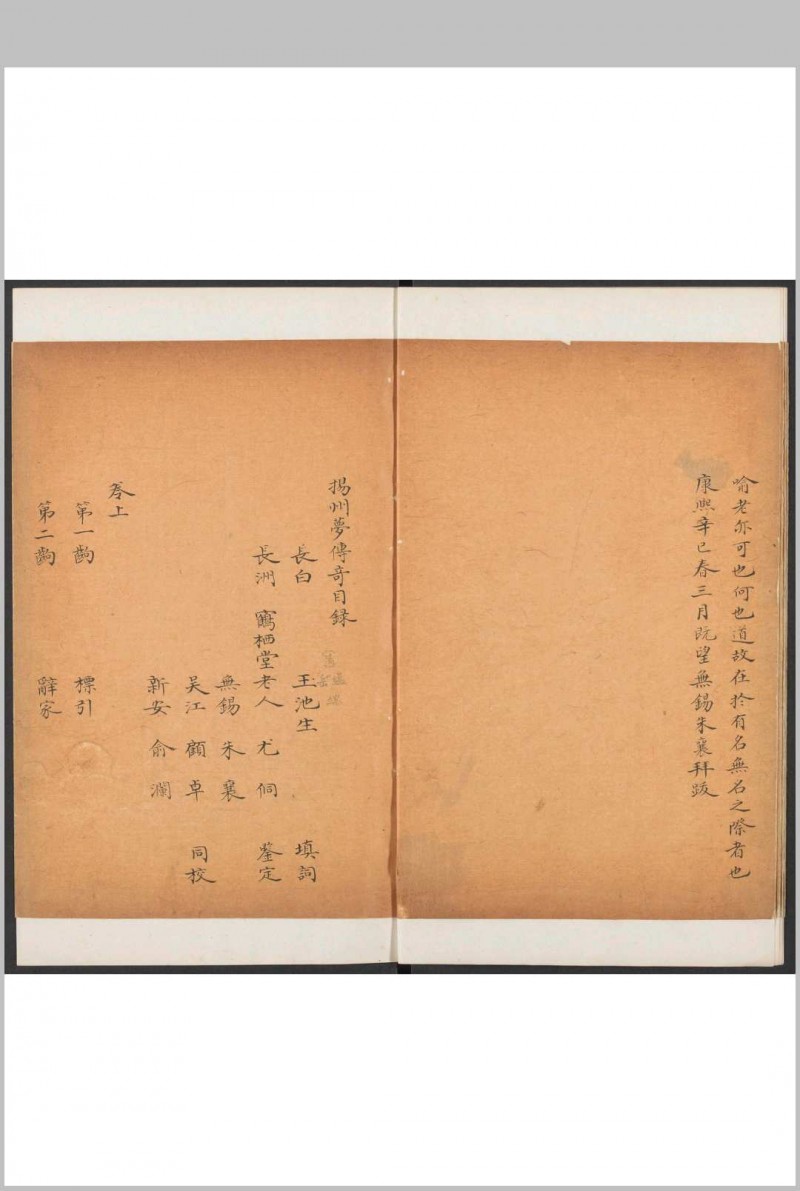 喻老亦可也何也道故在於有名無名之際者也
康熙辛巳春三月既望無錫朱襄拜跋
揚州夢傳奇目錄
長白 玉池生 填詞
長洲 鶴栖堂老人 尤侗 鑒定
無錫 朱襄
吴江 顧卓 同校
新安 俞瀾
卷上
第一齣 標引
第二齣 辭家